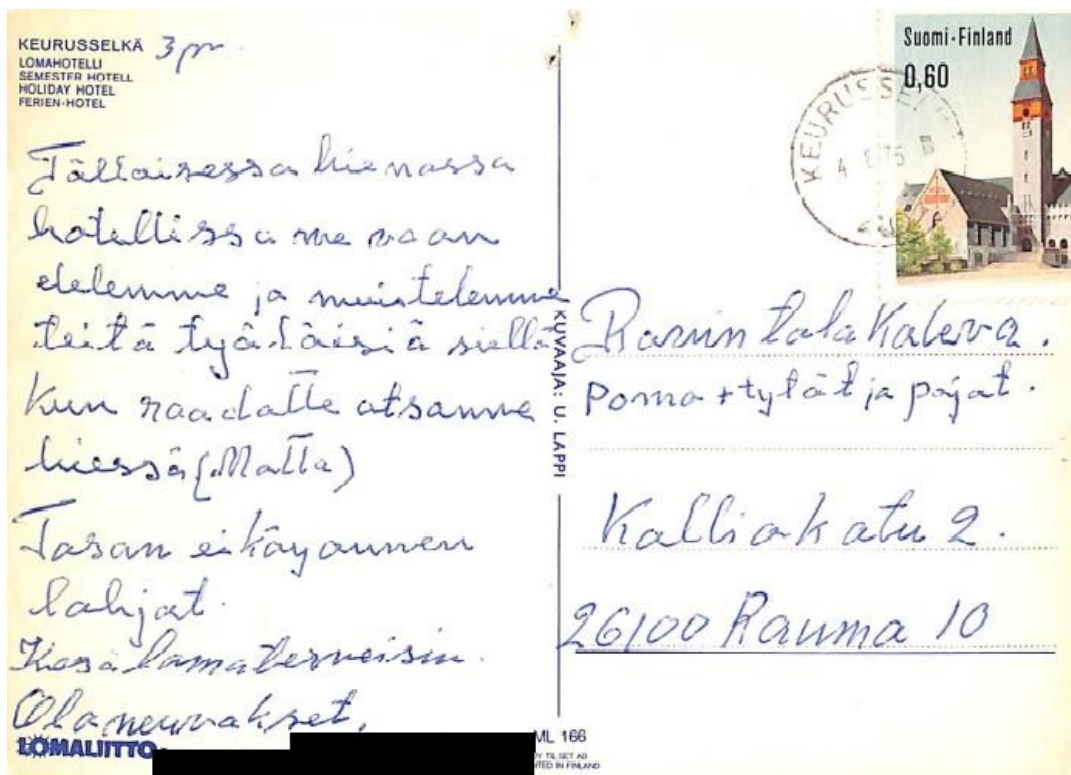 KEURUSSELKÄ 3 pv
LOMAHOTELLI
SEMESTER HOTELL
HOLIDAY HOTEL
FERIEN-HOTEL
Tällaisessa hienossa
hotellissa me vaan
elelemme ja muistelemme
teitä työläisiä siellä
Kun raadatte otsanne
hiessä (Matta)
Tasan ei käy onnen
lahjat.
Kesälomaterveisin.
LOMALIITTO
KUVAAJA: U. LAPPI
ML 166
OY TIL SET AB
PRINTED IN FINLAND
Suomi-Finland
0,60
KEURUSSELKÄ
4 8 75
Ravintola Kaleva.
Pomo + tytöt ja pojat.
Kalliokatu 2.
26100 Rauma 10